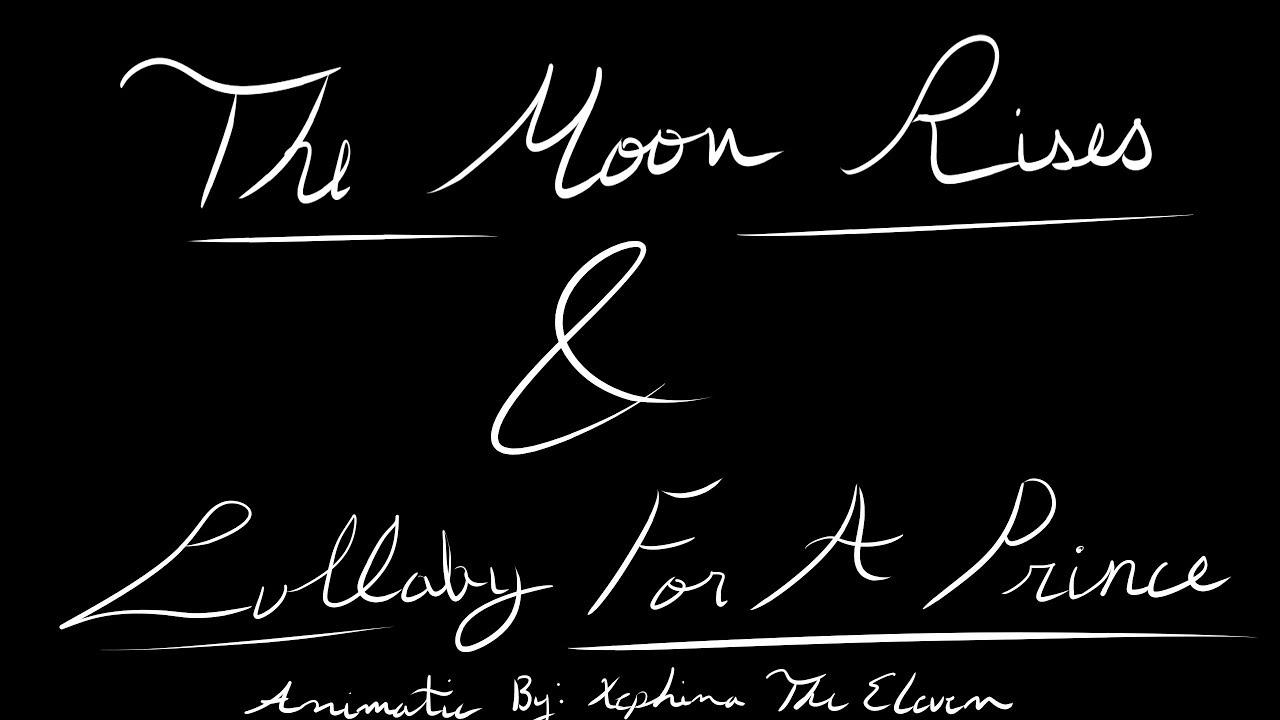 The Moon Rises
&
Lullaby For A Prince
Animatic By: Xephina The Eleven